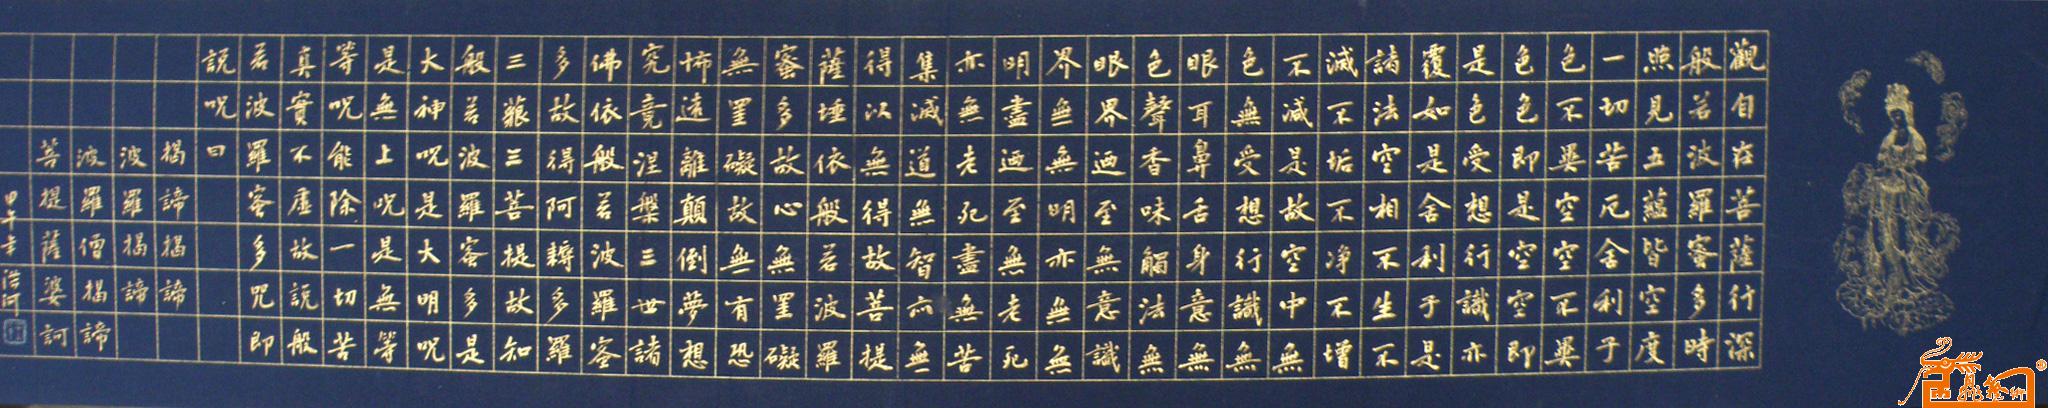 觀自在菩薩行深
般若波羅蜜多時
照見五蘊皆空度
一切苦厄舍利子
色不異空空不異
色色即是空空即
是色受想行識亦
覆如是舍利子是
諸法空相不生不
滅不垢不净不增
不減是故空中無
色無受想行識無
眼耳鼻舌身意無
色聲香味觸法無
眼界迺至無意識
界無無明亦無無
明盡迺至無老死
亦無老死盡無苦
集滅道無智亦無
得以無得故菩提
薩埵依般若波羅
蜜多故心無罣礙
無罣礙故無有恐
怖遠離顛倒夢想
究竟涅槃三世諸
佛依般若波羅蜜
多故得阿耨多羅
三藐三菩提故知
般若波羅蜜多是
大神呪是大明呪
是無上呪是無等
等呪能除一切苦
真實不虛故說般
若波羅蜜多咒即
說呪曰
揭諦揭諦
波羅揭諦
波羅僧揭諦
菩提薩婆訶
甲午年浩河